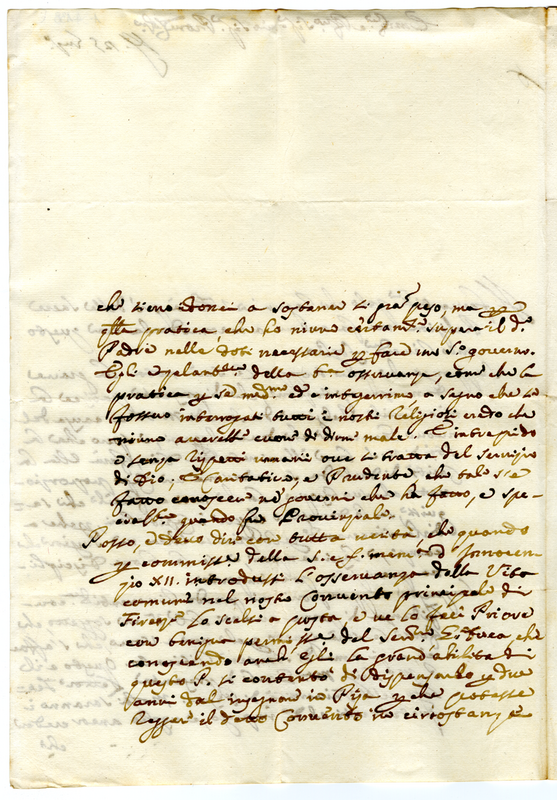 che sieno idonei a sostener sì gra. peso, ma
qlla pratica, che ho niuno certam.te supera il d.o
Padre nelle doti necessarie p fare un s.o governo.
Egli è zelant.mo della osservanza, come che la
pratica p se med.mo ed è integerrimo a segno che se
fossero interrogati tutti i nostri Religiosi credo che
niuno averebbe cuore di dirne male. È intrepido
e senza rispetti umani ove si tratta del servizio
di Dio; è Caritativo, e Prudente che tale s'è
fatto conoscere ne governi che ha fatto, e spe-
cialm. quando fu Provinciale.
Posso, e devo dire con tutta verità, che quando
p commiss.e della S. mem. d' Innocen-
zio XII. introdussi l'osservanza della Vita
comune nel nostro Convento principale di
Firenze lo scelsi a posta, e ve lo feci Priore
con benigna permiss.e del Seren. che
conoscendo anch'egli la grand'abilità di
questo P. si contentò di dispensarlo p due
anni dal insegnare in Pisa p che potesse
regger il detto Convento in circostanze